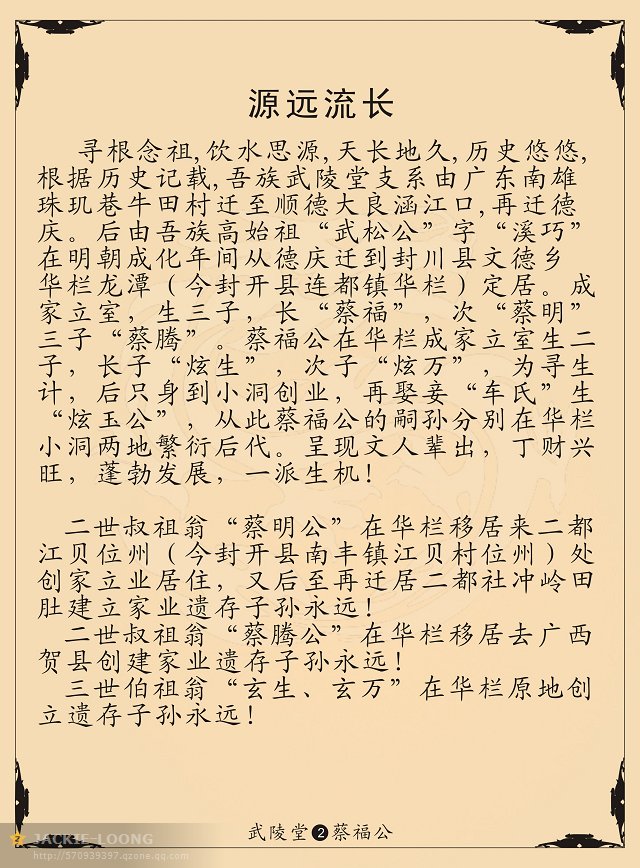 源远流长
寻根念祖,饮水思源,天长地久,历史悠悠,
根据历史记载,吾族武陵堂支系由广东南雄
珠玑巷牛田村迁至顺德大良涵江口,再迁德
庆。后由吾族高始祖“武松公”字“溪巧”
在明朝成化年间从德庆迁到封川县文德乡
华栏龙潭（今封开县连都镇华栏）定居。成
家立室，生三子，长“蔡福”，次“蔡明”
三子“蔡腾”。蔡福公在华栏成家立室生二
子，长子“炫生”，次子“炫万”，为寻生
计，后只身到小洞创业，再娶妾“车氏”生
“炫玉公”，从此蔡福公的嗣孙分别在华栏
小洞两地繁衍后代。呈现文人辈出，丁财兴
旺，蓬勃发展，一派生机！
二世叔祖翁“蔡明公”在华栏移居来二都
江贝位州（今封开县南丰镇江贝村位州）处
创家立业居住，又后至再迁居二都社冲岭田
肚建立家业遗存子孙永远！
二世叔祖翁“蔡腾公”在华栏移居去广西
贺县创建家业遗存子孙永远！
三世伯祖翁“玄生、玄万”在华栏原地创
立遗存子孙永远！
武陵堂❷蔡福公
JACKIE-LOONG
http://570939397.qzone.qq.com